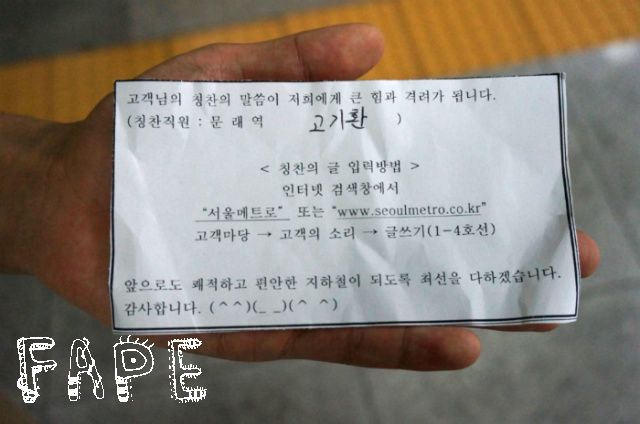 고객님의 칭찬의 말씀이 저희에게 큰 힘과 격려가 됩니다.
(칭찬직원 : 문 래 역 고기환 )
< 칭찬의 글 입력방법 >
인터넷 검색창에서
"서울메트로" 또는 "www.seoulmetro.co.kr"
고객마당 → 고객의 소리 → 글쓰기(1-4호선)
앞으로도 쾌적하고 편안한 지하철이 되도록 최선을 다하겠습니다.
감사합니다. (^^)(_ _)(^ ^)
FAPE